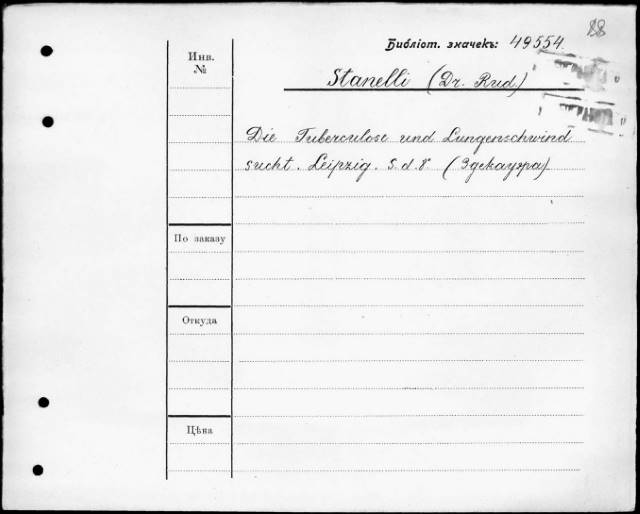 88
Библіот. значекъ: 49554.
Инв.
№
Stanelli (Dr. Rud)
Die Tuberculose und Lungenschwind
sucht. Leipzig. S. d. 8° (Здекауэра).
По заказу
Откуда
Цѣна